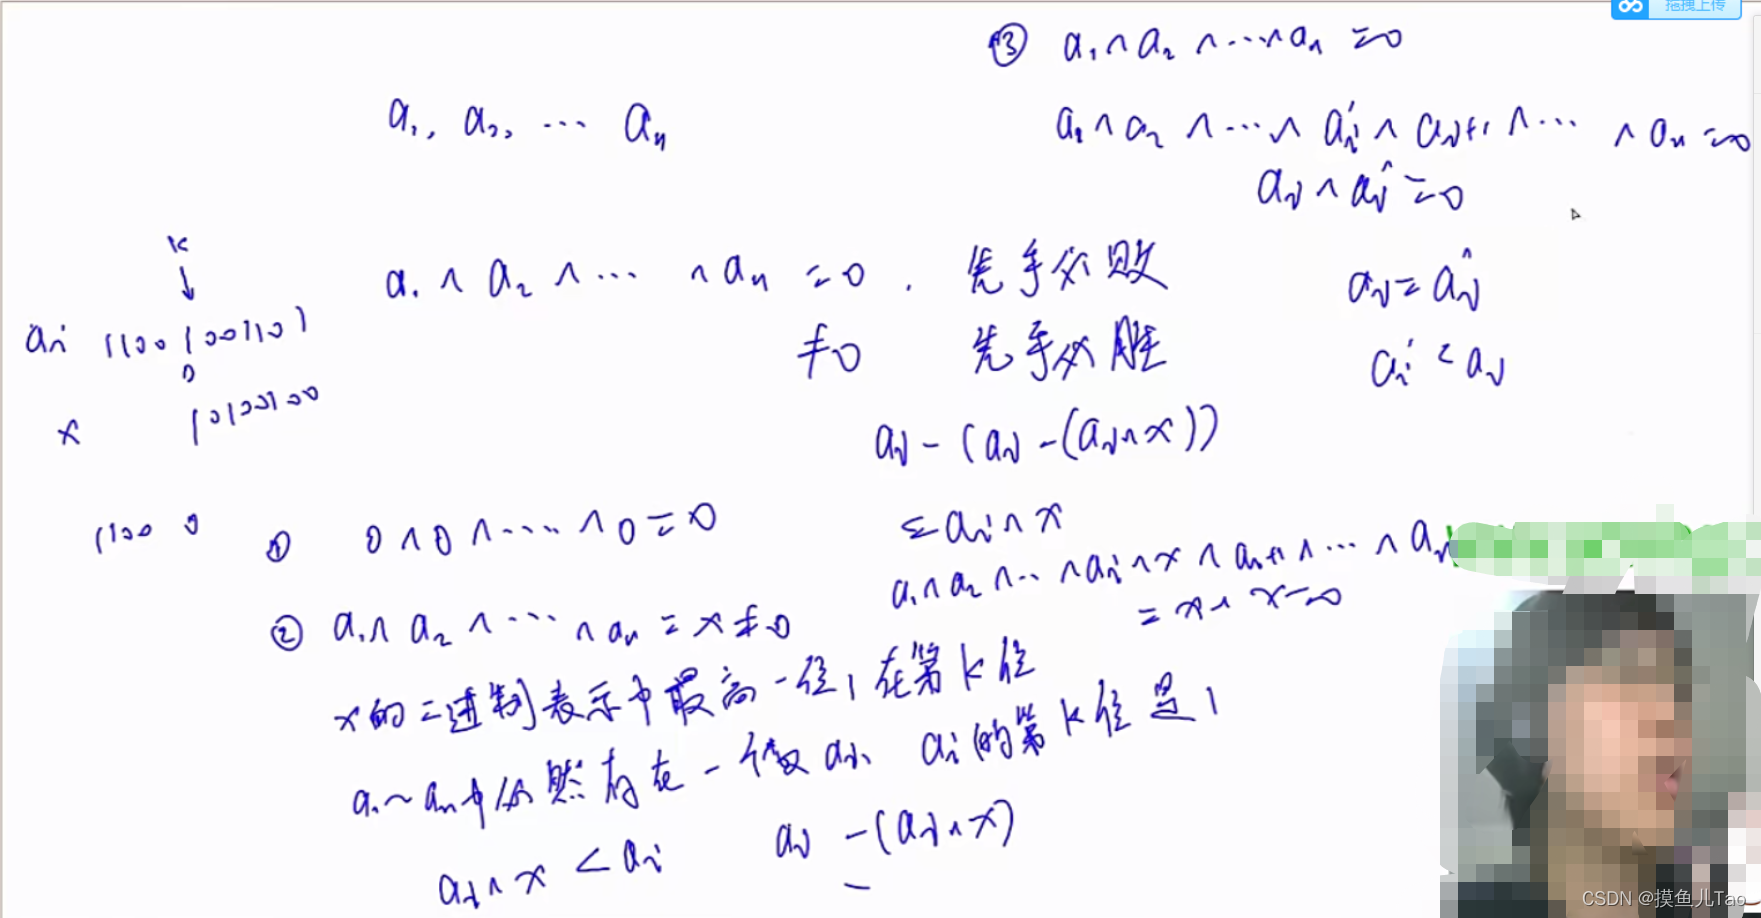 拖拽上传
③ a₁ ∧ a₂ ∧ … ∧ aₙ = 0
a₁, a₂, … aₙ
a₁ ∧ a₂ ∧ … ∧ aᵢ' ∧ aᵢ₊₁ ∧ … ∧ aₙ = 0
aᵢ ∧ aᵢ' = 0
k
↓
a₁ ∧ a₂ ∧ … ∧ aₙ = 0 . 先手必败
aᵢ = aᵢ'
aᵢ 11001001101
≠0 先手必胜
aᵢ' < aᵢ
0
x 10100100
aᵢ - (aᵢ - (aᵢ ∧ x))
1100 0
① 0 ∧ 0 ∧ … ∧ 0 = 0
= aᵢ ∧ x
a₁ ∧ a₂ ∧ … ∧ aᵢ ∧ x ∧ aᵢ₊₁ ∧ … ∧ aₙ
= x ∧ x = 0
② a₁ ∧ a₂ ∧ … ∧ aₙ = x ≠ 0
x的二进制表示中最高一位1在第k位
a₁~aₙ中必然存在一个数aᵢ, aᵢ的第k位是1
aᵢ ∧ x < aᵢ
aᵢ - (aᵢ ∧ x)
CSDN @摸鱼儿Tao